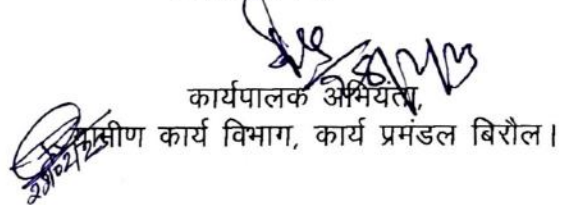 कार्यपालक अभियंता,
ग्रामीण कार्य विभाग, कार्य प्रमंडल बिरौल।